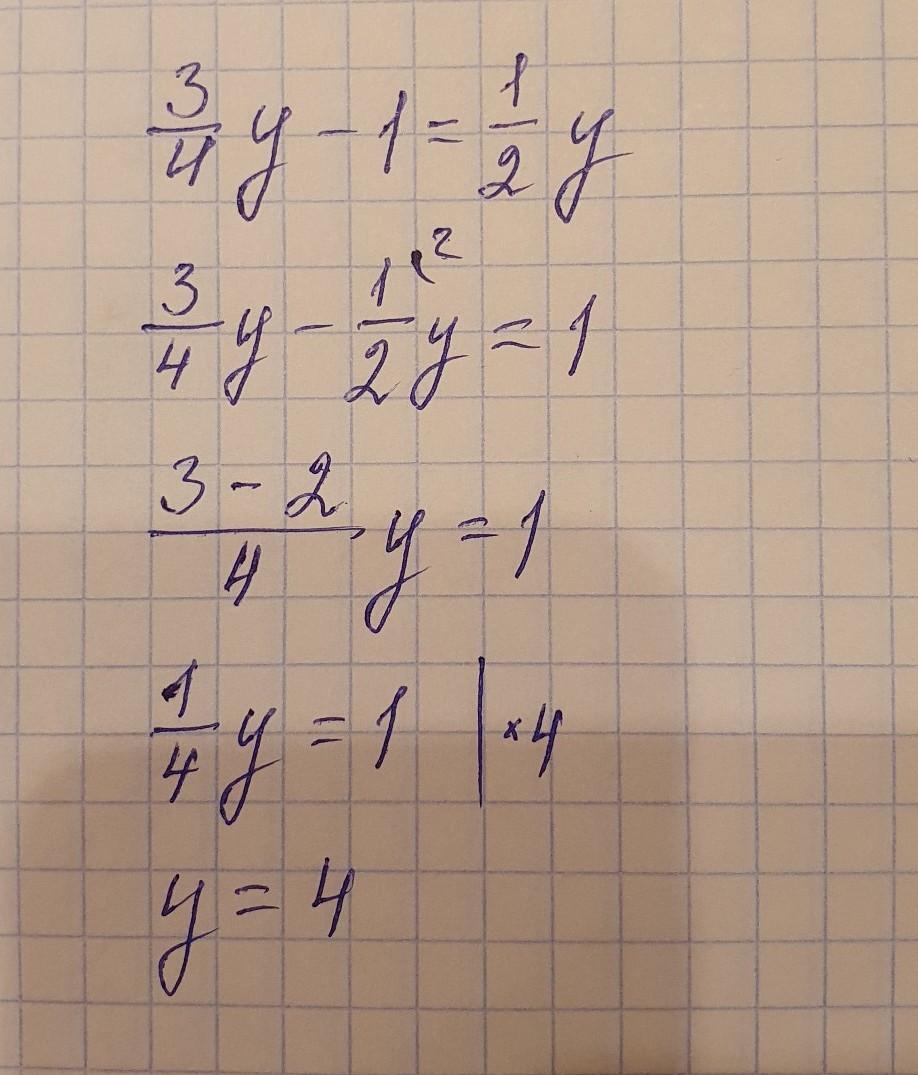 3/4 y - 1 = 1/2 y
3/4 y - 1/2 ⁽² y = 1
(3 - 2)/4 y = 1
1/4 y = 1 | × 4
y = 4